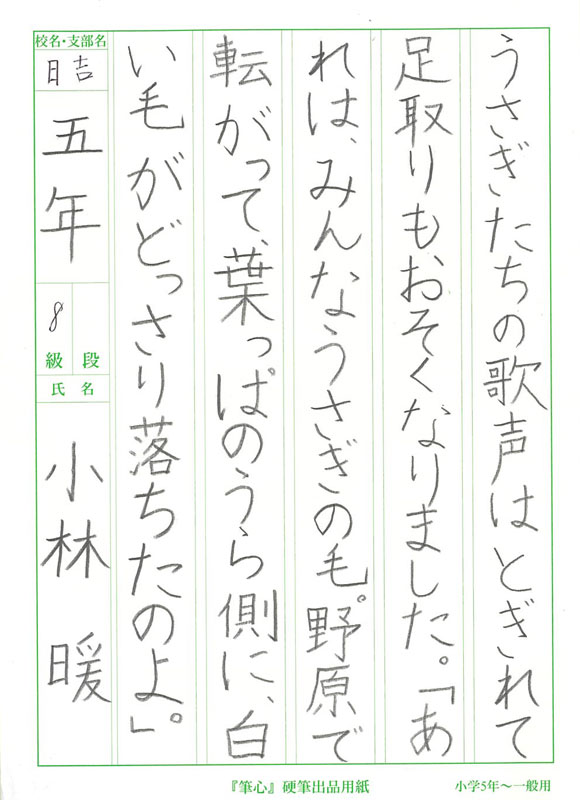 うさぎたちの歌声はとぎれて
足取りもおそくなりました。「あ
れは、みんなうさぎの毛。野原で
転がって、葉っぱのうら側に、白
い毛がどっさり落ちたのよ」。
校名・支部名
日吉
五年
8
級 段
氏名
小林 暖
『筆心』硬筆出品用紙
小学5年～一般用